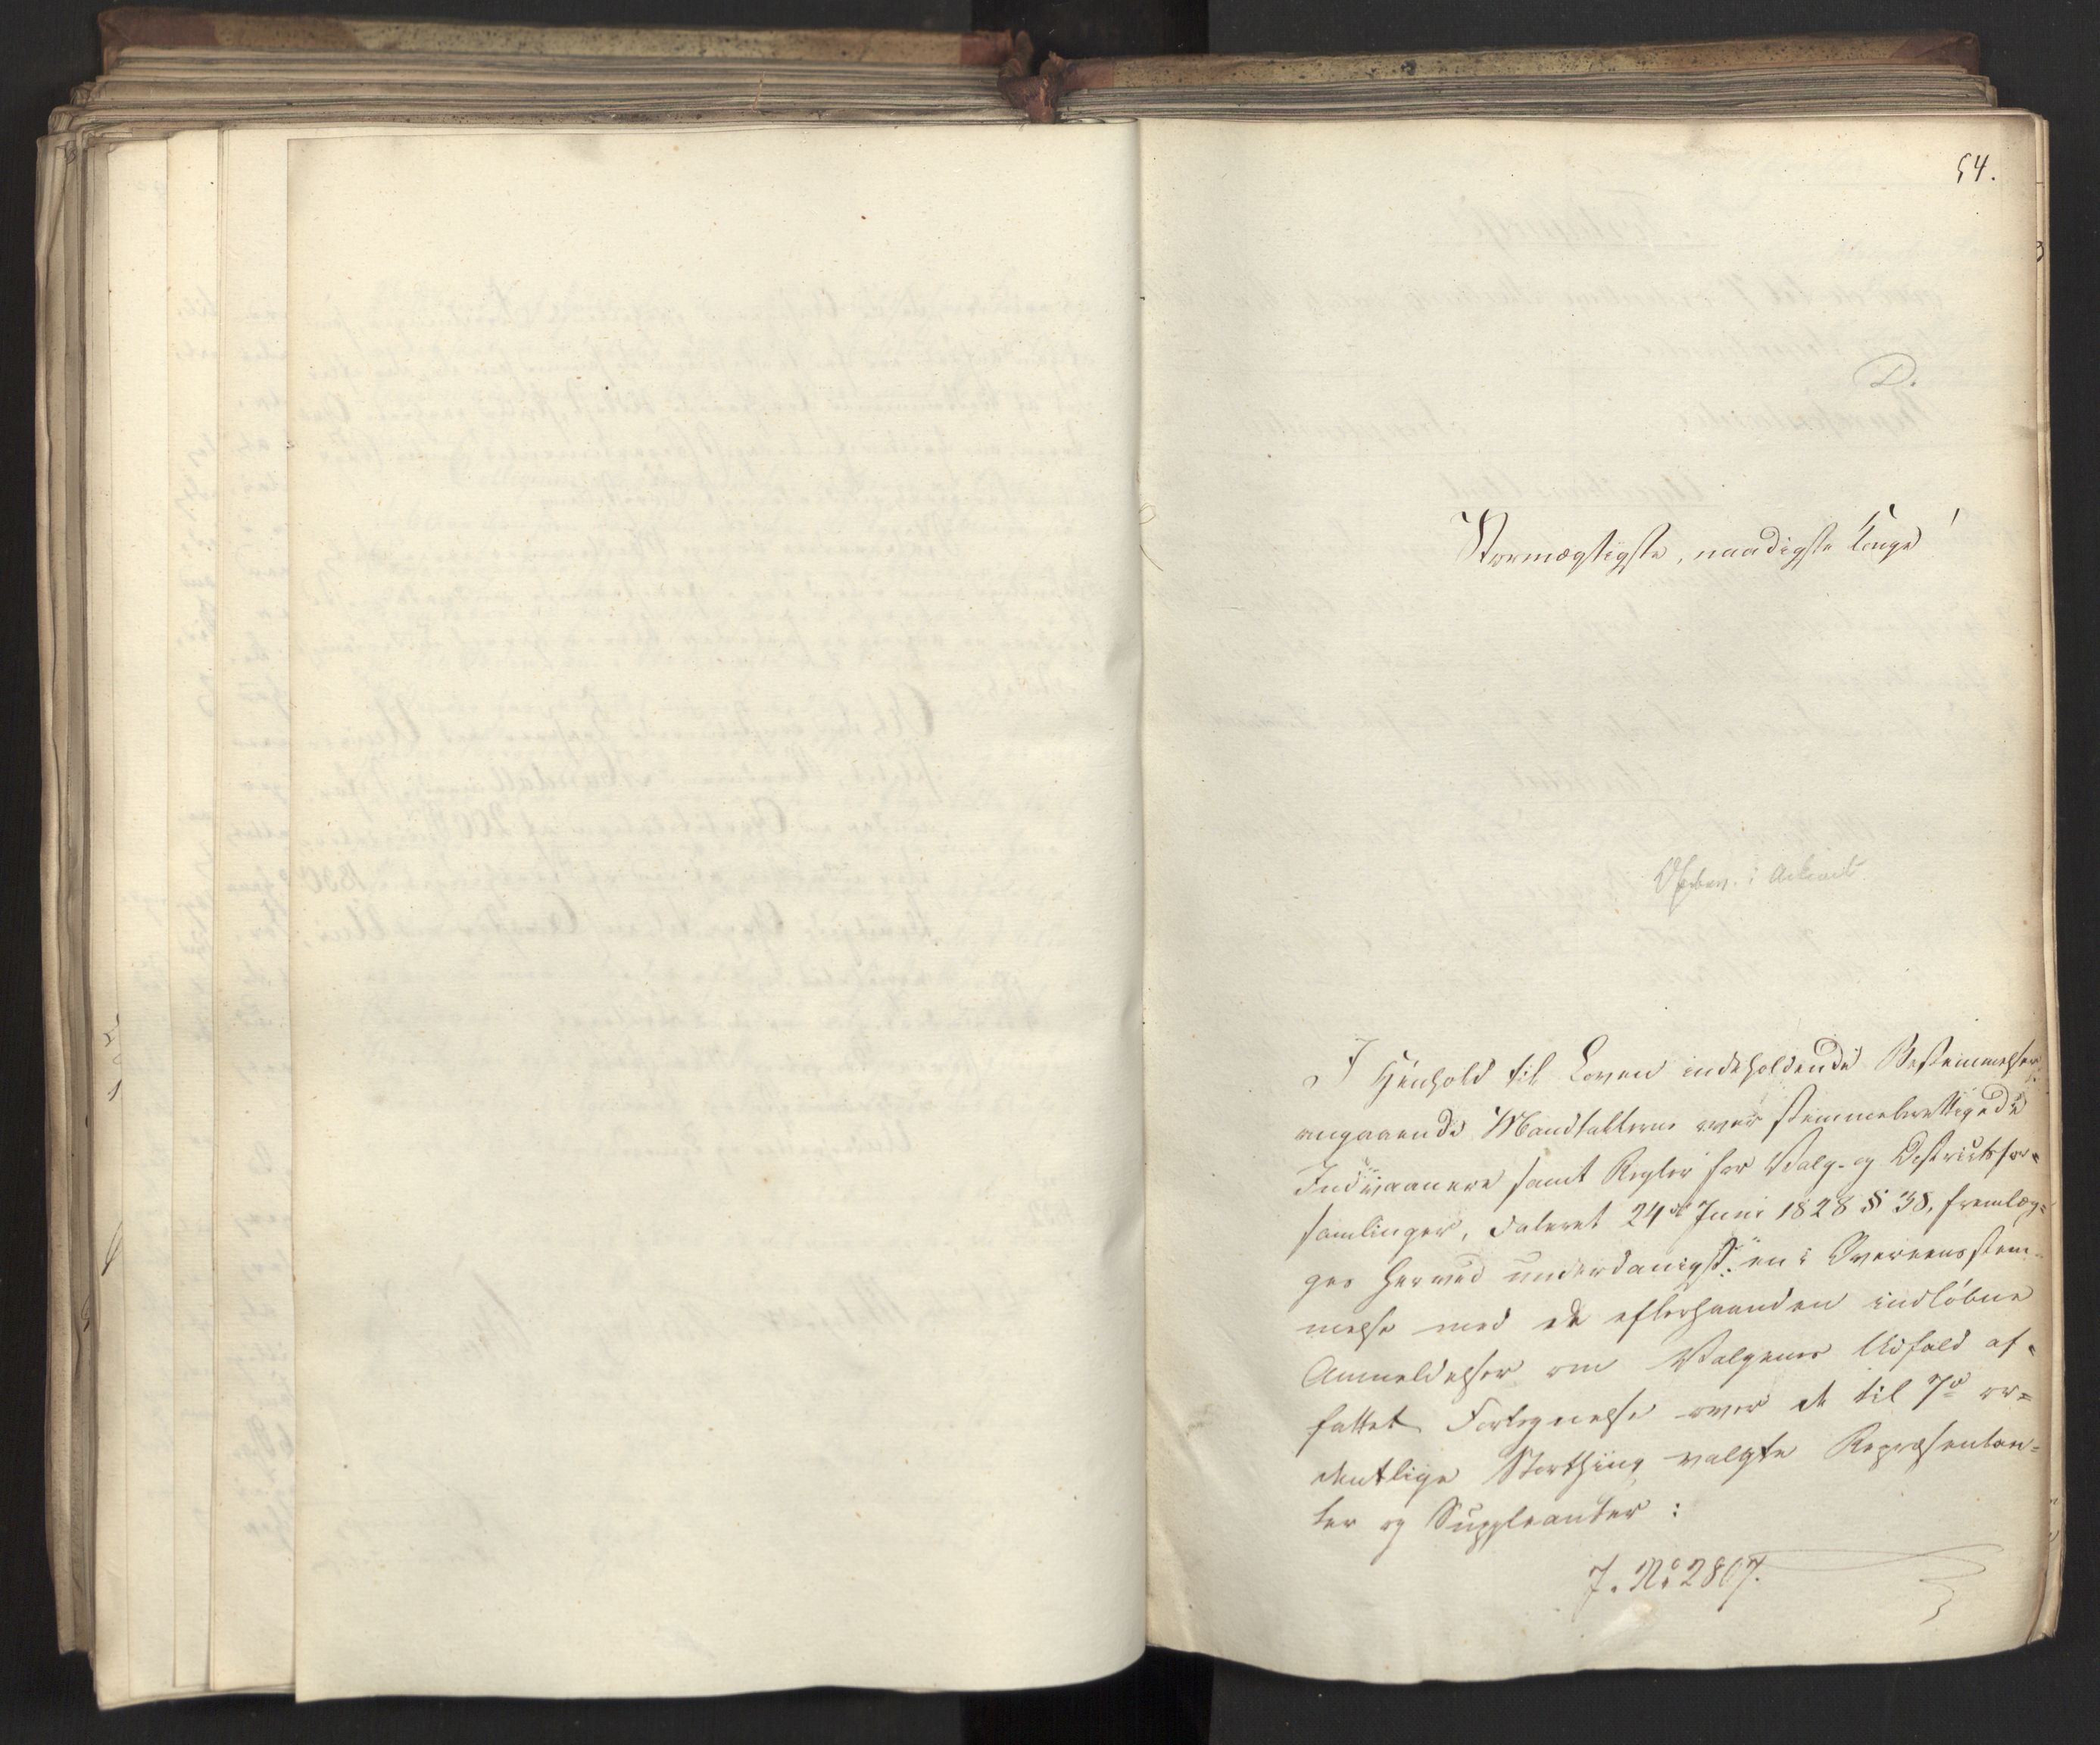 54.
D.
Stormægtigste, naadigste Konge!
I Henhold til Loven indeholdende Bestemmelser
angaaende Mandtallerne over stemmeberettigede
Indvaanere samt Regler for Valg- og Districtsfor=
samlinger, dateret 24de Juni 1828 § 38, fremlæg=
ges herved underdanigst: en i Overeensstem-
melse med de efterhaanden indløbne
Anmeldelser om Valgenes Udfald af-
fattet Fortegnelse over de til 7de or=
dentlige Storthing valgte Repræsentan=
ter og Suppleanter:
J. No 2807.